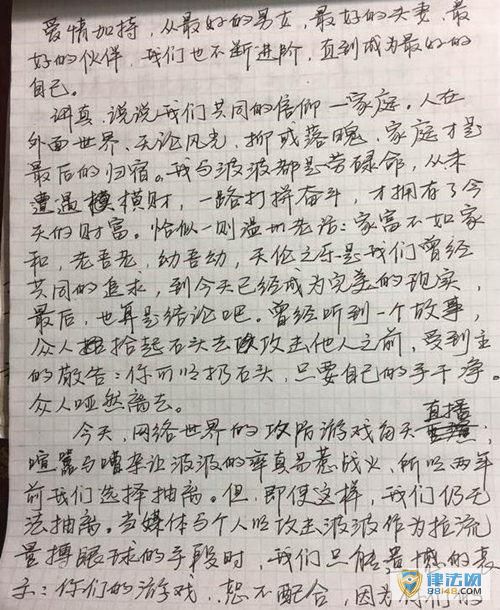 爱情加持,从最好的男女,最好的夫妻,最
好的伙伴,我们也不断进阶,直到成为最好的
自己。
讲真,说说我们共同的信仰一家庭。人在
外面世界,无论风光,抑或落魄,家庭才是
最后的归宿。我与波波都是劳碌命,从未
遭遇横财,一路打拼奋斗,才拥有了今
天的财富。恰似一则温州老话:家富不如家
和,老吾老,幼吾幼,天伦之乐是我们曾经
共同的追求,到今天已经成为完美的现实,
最后,也算是结论吧。曾经听到一个故事,
众人拾起石头去攻击他人之前,受到主
的敬告:你可以扔石头,只要自己的手干净。
众人哑然离去。
今天,网络世界的攻防游戏每天直播,
喧嚣与嘈杂让波波的率真易惹战火,所以两年
前我们选择抽离。但,即使这样,我们仍无
法抽离。当媒体与个人以攻击波波作为拉流
量搏眼球的手段时,我们只能最的表
示:你们的游戏,恕不配合,因为我们的
律法网
88148.com